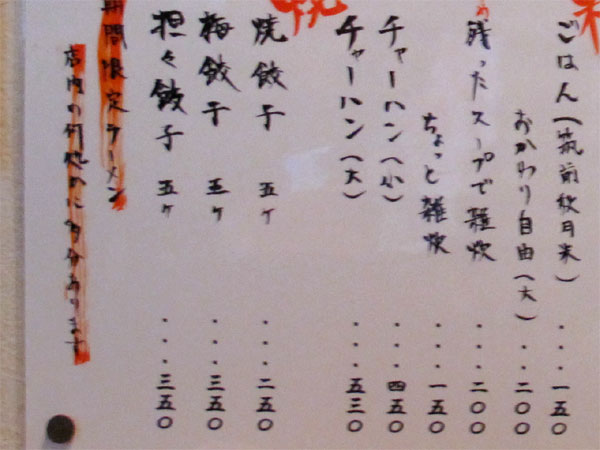 米
ごはん(筑前秋月米)・・・一五〇
おかわり自由(大)・・・二〇〇
残ったスープで雑炊・・・二〇〇
ちょっと雑炊・・・一五〇
チャーハン(小)・・・四五〇
チャーハン(大)・・・五三〇
焼
焼餃子 五ヶ・・・二五〇
梅餃子 五ヶ・・・三五〇
担々餃子 五ヶ・・・三五〇
期間限定ラーメン
店内の何処かに多分あります